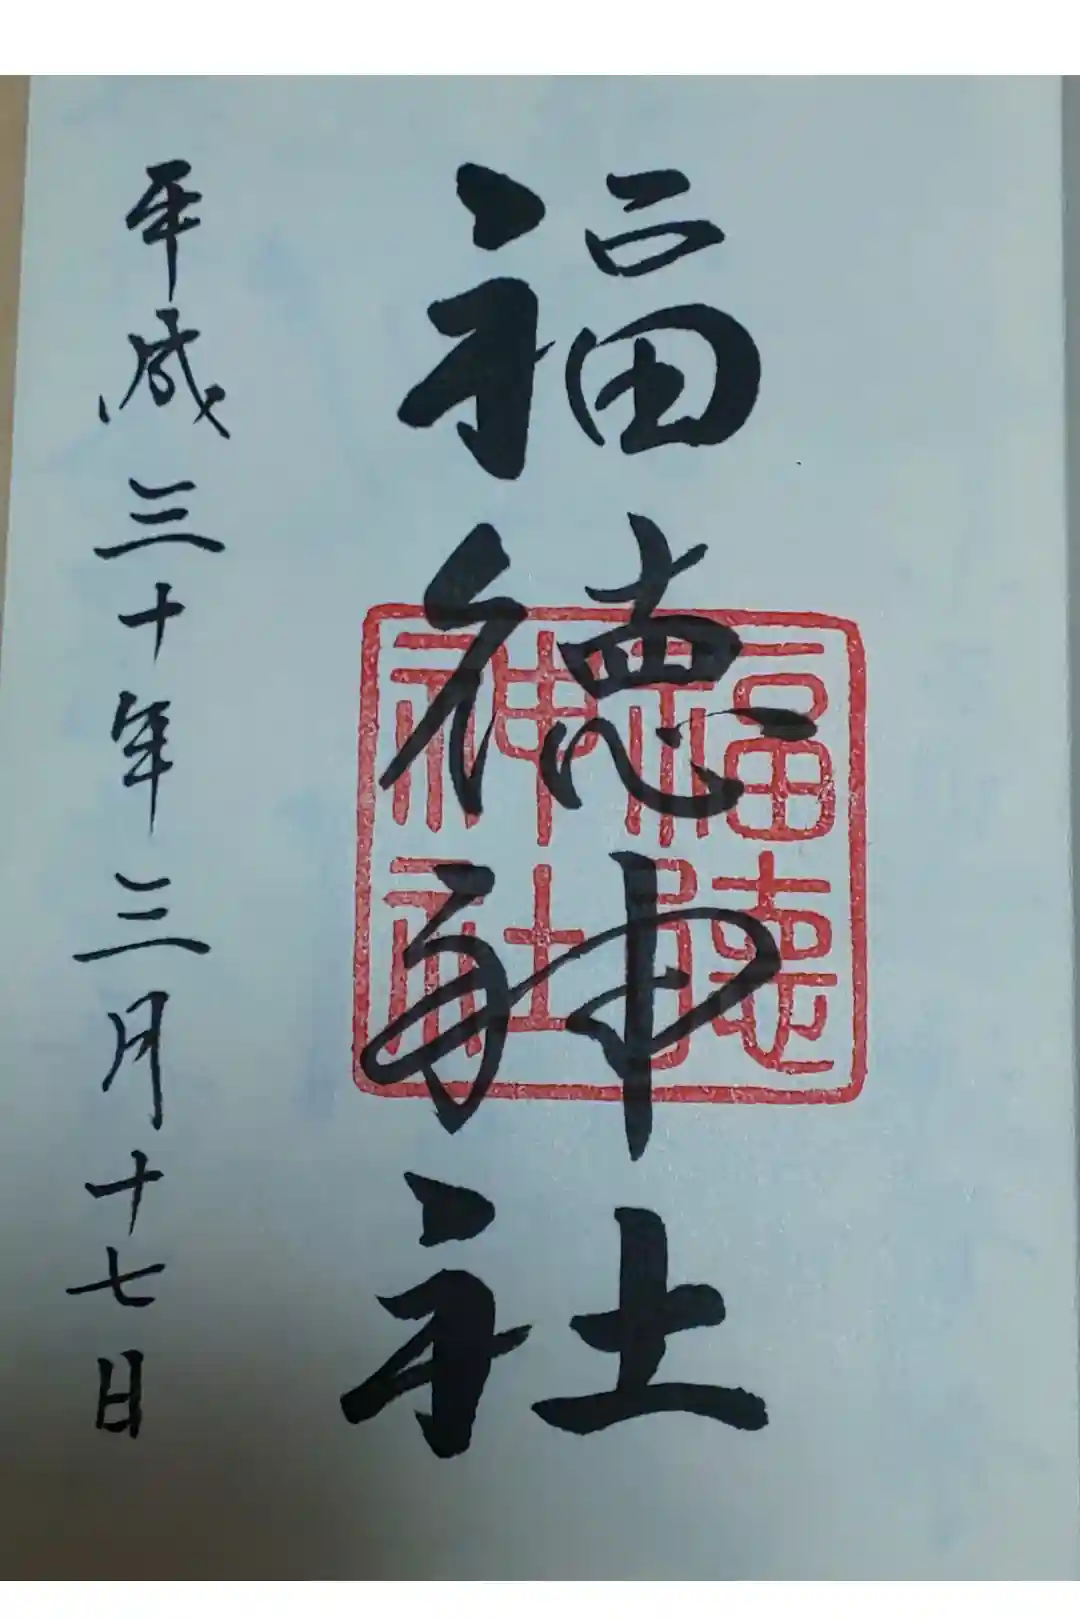 福徳神社
福徳
神社
平成三十年三月十七日